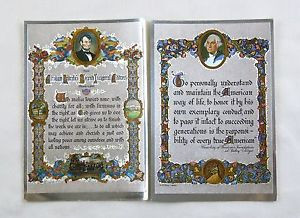 Abraham Lincoln's Second Inaugural Address
With malice toward none, with
charity for all; with firmness in
the right, as God gives us to see
the right, let us strive on to finish
the work we are in... to do all which
may achieve and cherish a just and
lasting peace among ourselves and with
all nations.
To personally understand
and maintain the American
way of life, to honor it by his
own exemplary conduct, and
to pass it intact to succeeding
generations is the responsi-
bility of every true American